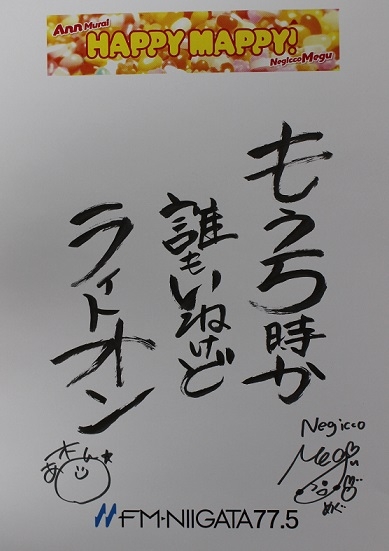 Ann Murai
HAPPY MAPPY!
Negicco Megu
もう5時か
誰もいねけど
ライトオン
Negicco
Megu
めぐ
あんさん
FM-NIIGATA 77.5